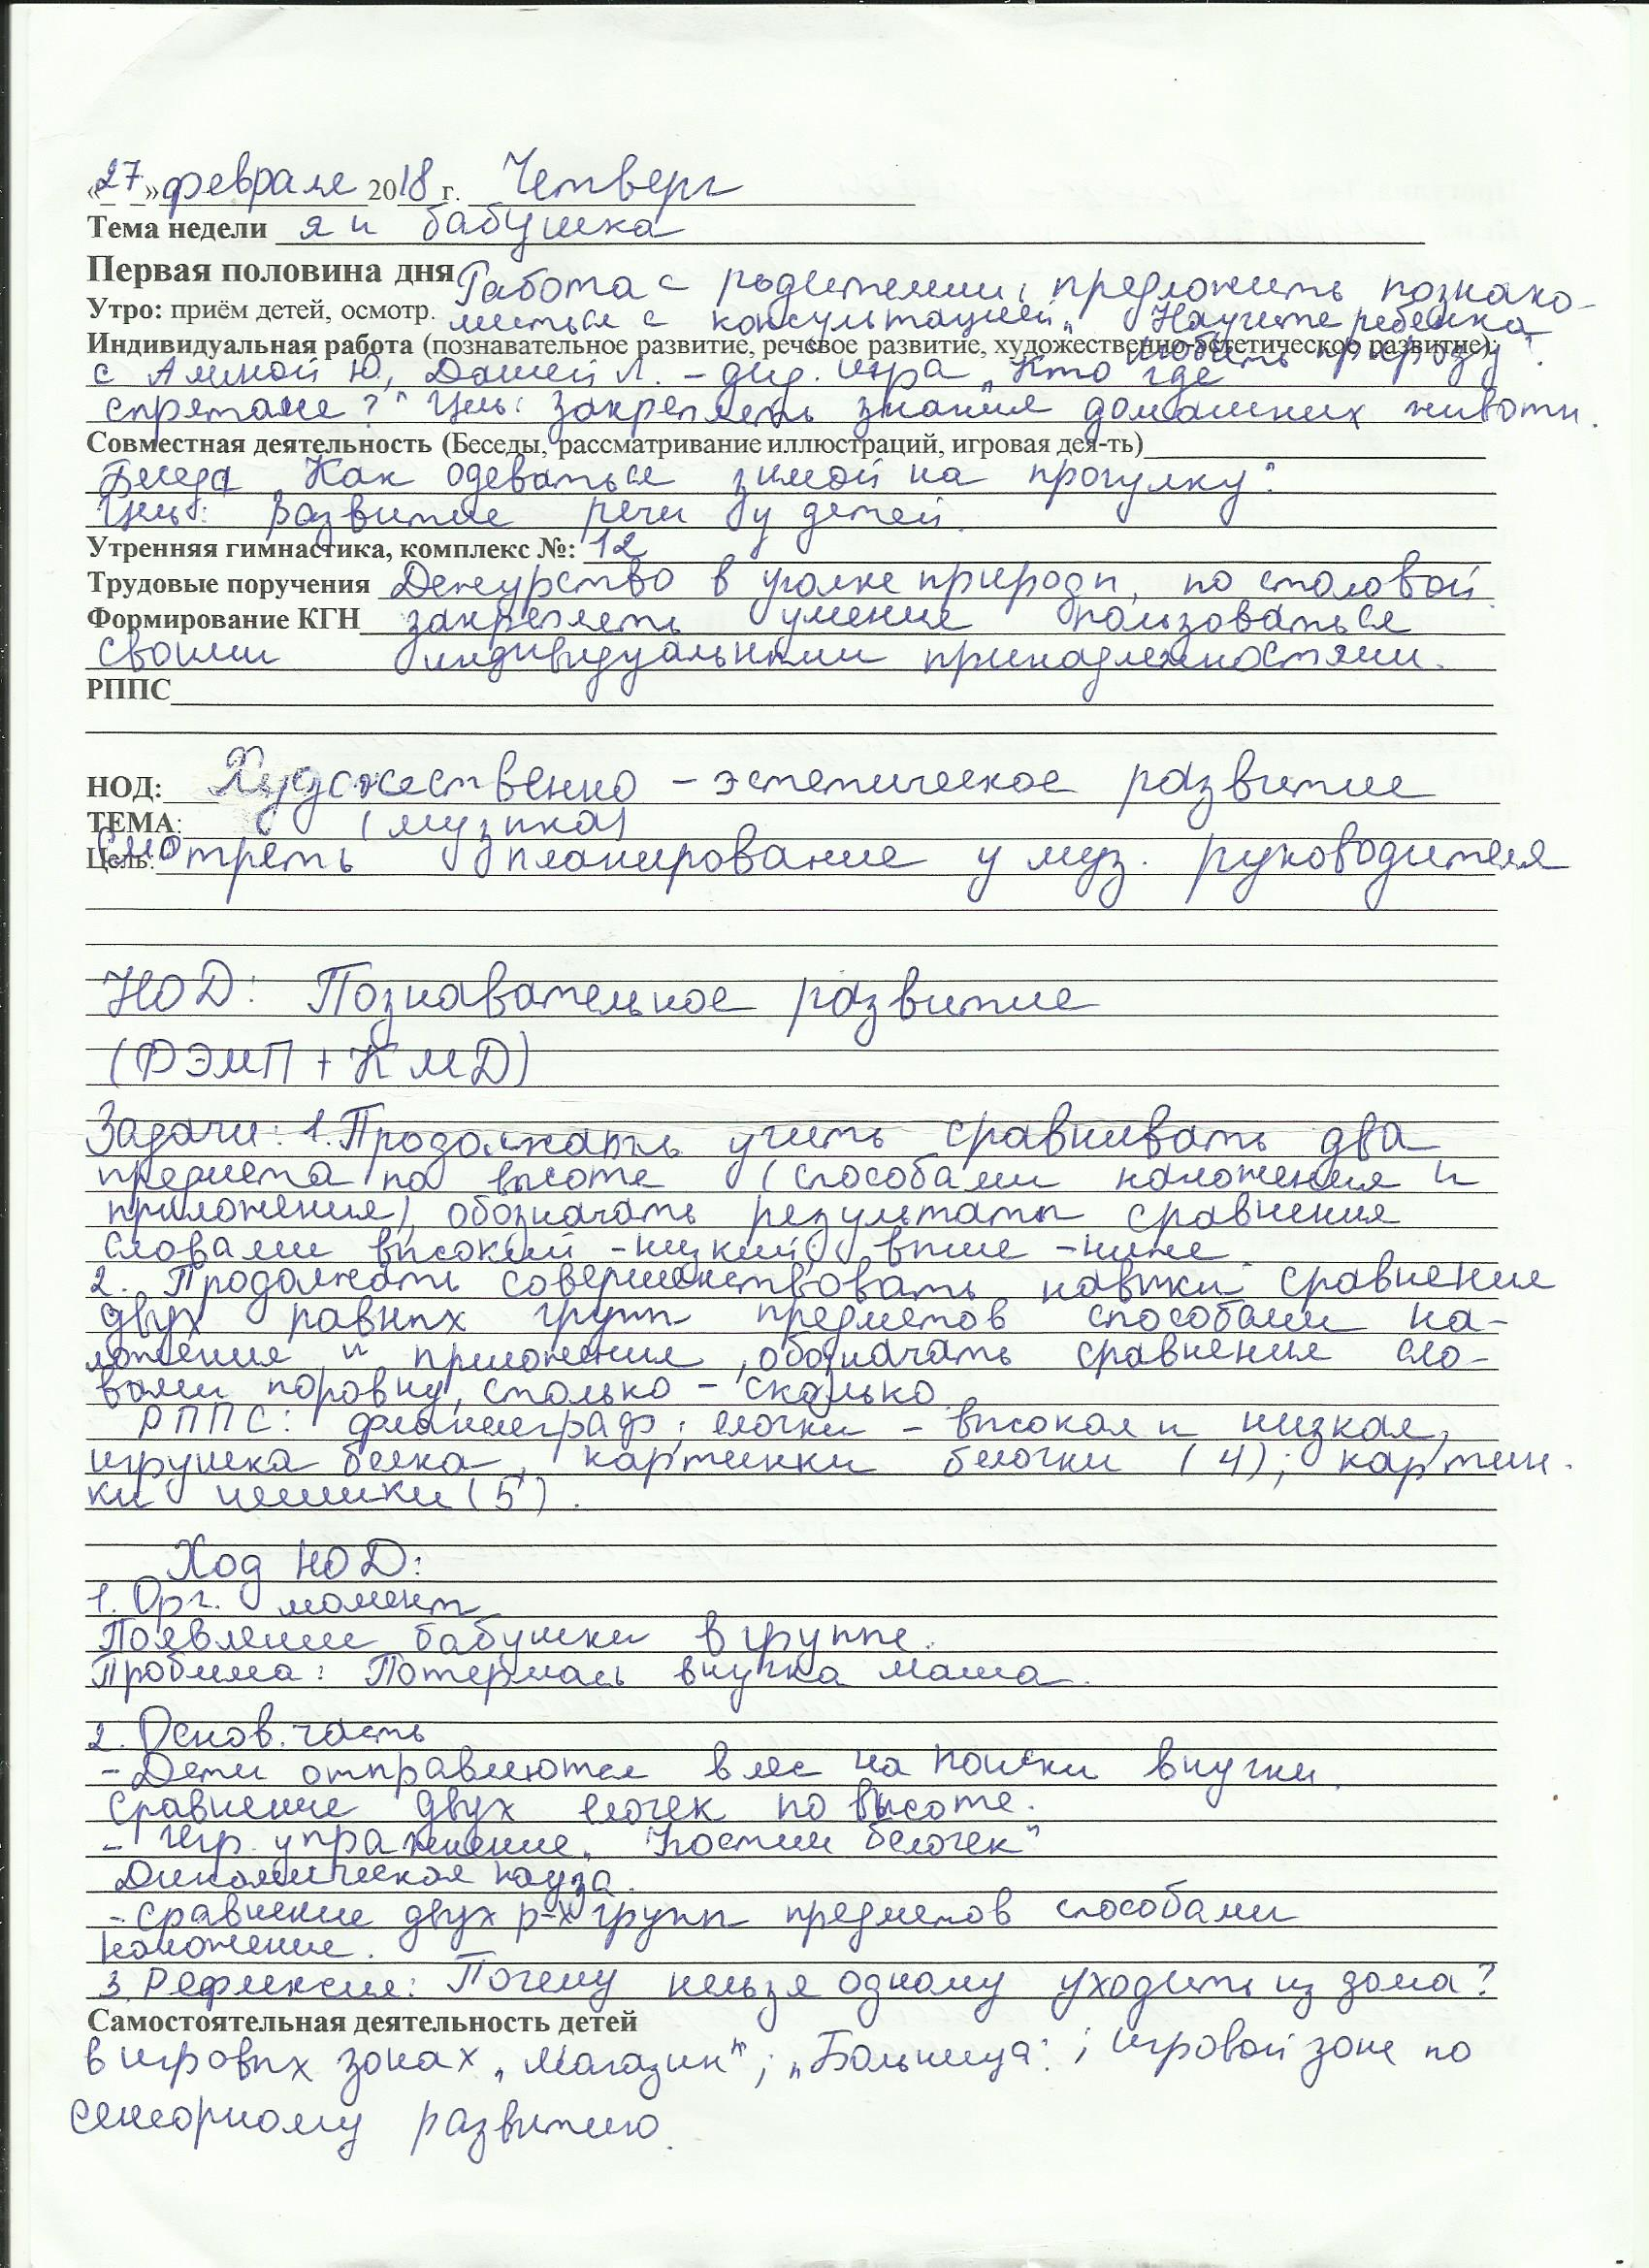 «27» февраля 2018 г. Четверг
Тема недели я и бабушка
Первая половина дня Работа с родителями, предложить познако-
Утро: приём детей, осмотр. миться с консультацией „Научите ребенка
Индивидуальная работа (познавательное развитие, речевое развитие, художественно-эстетическое развитие): любить природу".
с Алиной Ю, Дашей Л. – дид. игра „Кто где
спрятале?" Цель: закреплять знания домашних животн.
Совместная деятельность (Беседы, рассматривание иллюстраций, игровая дея-ть)
Беседа „Как одеваться зимой на прогулку"
Цель: развитие речи у детей.
Утренняя гимнастика, комплекс №: 12
Трудовые поручения Дежурство в уголке природы, по столовой.
Формирование КГН закреплять умение пользоваться
своими индивидуальными принадлежностями.
РППС
НОД: Художественно – эстетическое развитие
ТЕМА: (музыка)
Цель: Смотреть планирование у муз. руководителя
НОД: Познавательное развитие
(ФЭМП + КМД)
Задачи: 1. Продолжать учить сравнивать два
предмета по высоте (способами наложения и
приложения), обозначать результаты сравнения
словами высокий – низкий, выше – ниже
2. Продолжать совершенствовать навыки сравнения
двух равных групп предметов способами на-
ложения и приложения, обозначать сравнения сло-
вами поровну, столько – сколько.
РППС: фланелеграф; елочки – высокая и низкая,
игрушка белка, картинки белочки (4); картин-
ки шишки (5).
Ход НОД:
1. Орг. момент
Появление бабушки в группе.
Проблема: Потерялась внучка Маша.
2. Основ. часть
– Дети отправляются в лес на поиски внучки.
Сравнение двух елочек по высоте.
– Игр. упражнение „Угостим белочек"
Динамическая пауза.
– сравнение двух р-х групп предметов способами
наложение.
3. Рефлексия: Почему нельзя одному уходить из дома?
Самостоятельная деятельность детей
в игровых зонах „Магазин"; „Больница"; игровой зоне по
сенсорному развитию.